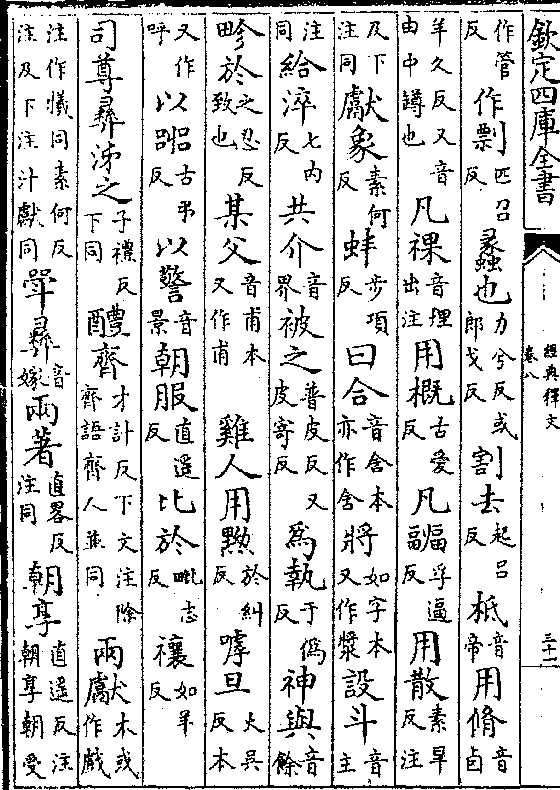 欽定四庫全書
經典釋文
卷八
三十一
作管反作剽匹召反蠡也力兮反或郎戈反割去起呂反柢音帝用脩音卣
羊久反又音由中罇也凡祼音埋出注用概古愛反凡疈孚逼反用散素旱反注
及下注同獻象素何反蚌步項反曰合音含本亦作含將如字本又作漿設斗音主
注同給淬七内反共介音界被之普皮反又皮寄反為執于偽反神與音餘
畛於之忍反致也某父音甫本又作甫雞人用黝於糾反嘑旦火吳反本
又作呼以嘂古弔反以警音景朝服直遥反比於毗志反禳如羊反
司尊彞泲之子禮反下同醴齊才計反下文注除齊語齊人並同兩獻本或作戲
注作犧同素何反注及下注汁獻同斝彞音嫁兩著直畧反注同朝享直遥反注朝享朝受